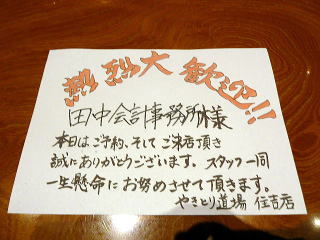 熱烈大歓迎!!
田中会計事務所様
本日はご予約、そして ご来店頂き
誠にありがとうございます。スタッフ一同
一生懸命に お努めさせて頂きます。
やきとり道場 住吉店